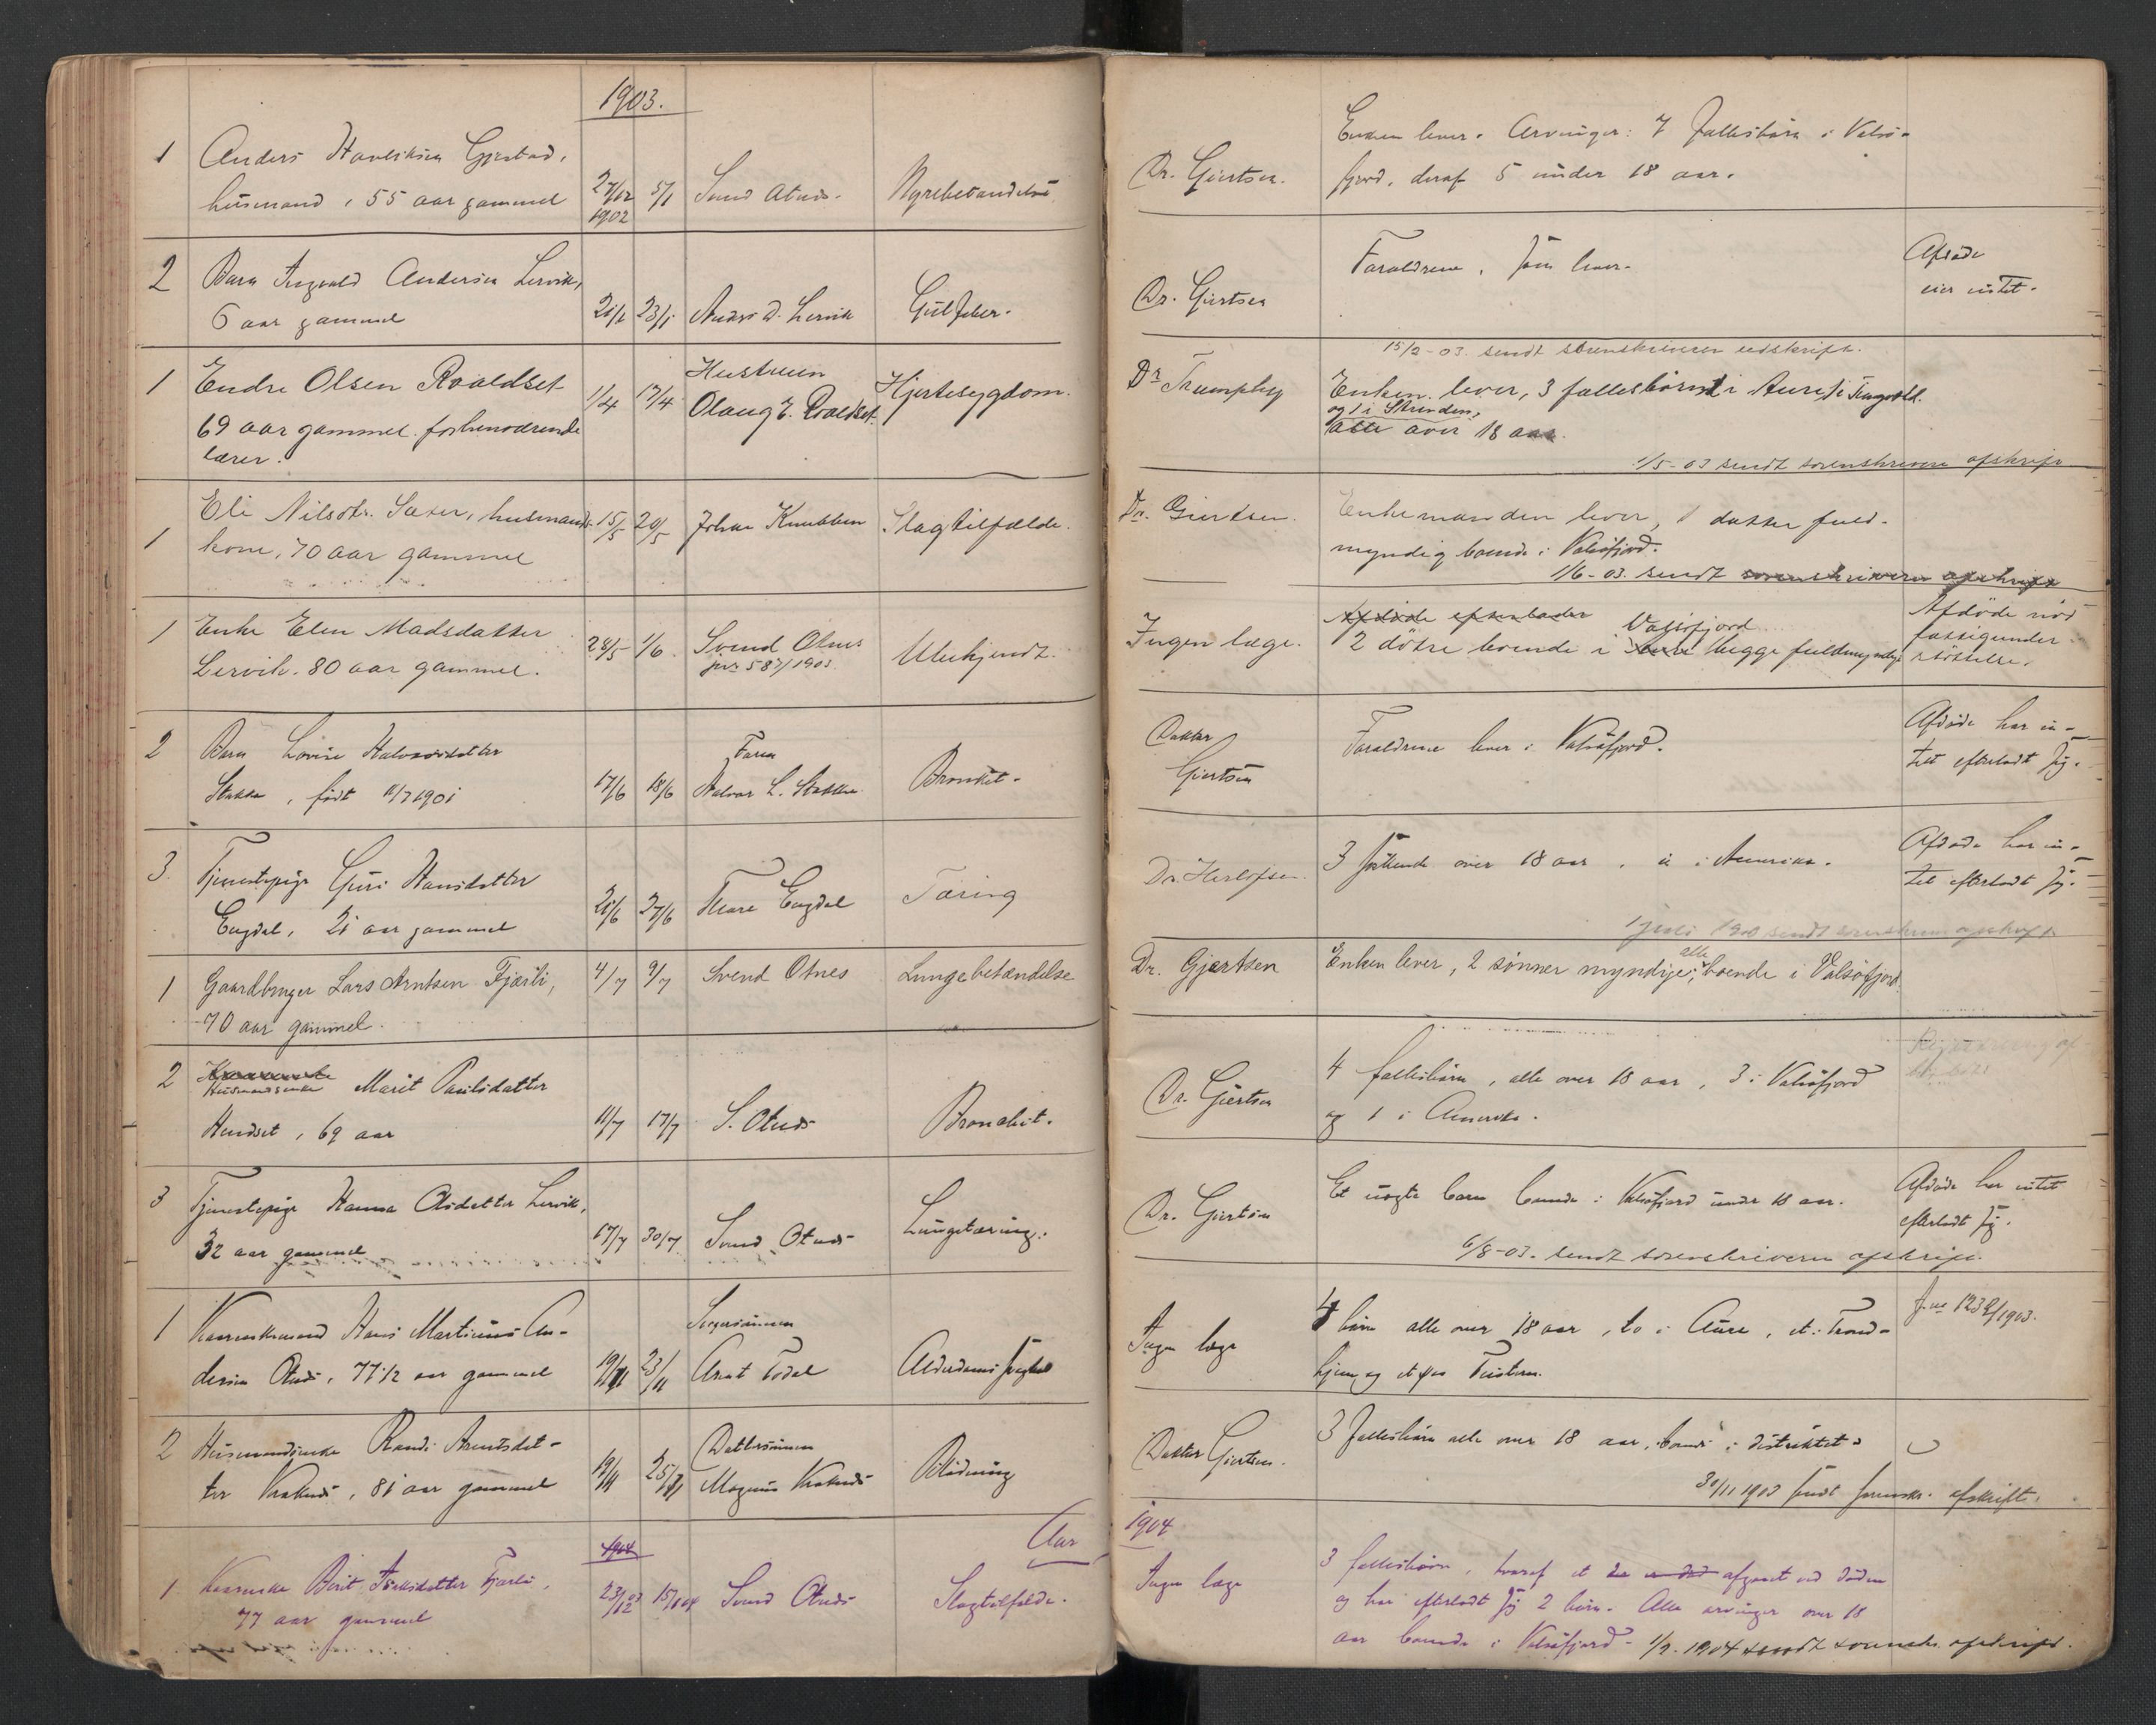 1903.
1 Anders Gjestad,
husmand, 55 aar gammel 27/12 1902 5/1 Svend Otnæs. Nyrebetændelse
2 Barn Ingvald Andersen Lervik,
6 aar gammel 21/1 23/1 Anders A. Lervik Gulfeber.
1 Endre Olsen Roaldset
69 aar gammel. forhenværende
lærer. 1/4 17/4 Hustruen
Olaug E. Roaldset. Hjertesygdom.
1 Eli Nilsdtr. Sæter, husmands-
kone, 70 aar gammel 15/5 20/5 Johan Knubben Slagtilfælde.
1 Enke Elen Madsdatter
Lervik. 80 aar gammel. 28/5 1/6 Svend Otnes
jnr 587/1903. Ubekjendt.
2 Barn Lovise Halvorsdatter
Stokke, født 11/7 1901 17/6 18/6 Faren
Halvor L. Stokke Bronkit.
3. Tjenestepige Guri Hansdatter
Engdal, 21 aar gammel 21/6 27/6 Thore Engdal Tæring
1 Gaardbruger Lars Arntsen Fjærli,
70 aar gammel. 4/7 9/7 Svend Otnes Lungebetændelse
2 Husmandsenke Marit Paulsdatter
Hendset, 69 aar 11/7 17/7 S. Otnæs Bronchit.
3 Tjenestepige Hanna Olsdatter Lervik,
32 aar gammel 17/7 30/7 Svend Otnæs Lungetæring.
1 Hans Martinus An-
dersen Otnæs, 77 1/2 aar gammel 19/11 23/11
Arnt Todal Alderdoms
2 Husmandsenke Randi Arntsdat-
ter, 81 aar gammel 19/11 25/11 Dattersønnen
Magnus Blødning
Aar
1904
1. Berit Fjærli,
77 aar gammel 23/12 03 15/1 04 Svend Otnæs Slagtilfælde.
Dr. Giertsen. Enken lever. Arvinger: 7 fællesbørn i Valsø-
fjord, deraf 5 under 18 aar.
Dr. Giertsen Forældrene, som lever. Afdøde
eier intet.
15/2-03. sendt sorenskriveren udskrift.
Dr Trumphy Enken lever, 3 fællesbørn 1 i Aure, 1 i Tingvold.
og 1 i Strinden,
alle over 18 aar.
1/5-03 sendt sorenskriveren afskrift
Dr. Giertsen. Enkemanden lever, 1 datter fuld-
myndig boende i Valsøfjord.
1/6-03. sendt sorenskriveren afskrift
Ingen læge. Afdøde efterlader Valsøfjord
2 døtre boende i begge fuldmyndige Afdøde nød
fattigunder-
støttelse.
Doktor
Giertsen Forældrene lever i Valsøfjord. Afdøde har in-
tet efterladt sig.
Dr. Herlofsen. 3 søskende over 18 aar, i Amerika. Afdøde har in-
tet efterladt sig.
sendt sorenskriveren afskrift
Dr. Gjertsen Enken lever, 2 sønner myndige, alle boende i Valsøfjord.
Dr. Giertsen 4 fællesbørn, alle over 18 aar, 3 i Valsøfjord
og 1 i Amerika.
Dr. Giertsen Et uægte barn boende i Valsøfjord under 18 aar. Afdøde har intet
efterladt sig.
6/8-03. sendt sorenskriveren afskrift.
Ingen læge 4 børn alle over 18 aar, to i Aure, et i Trond-
hjem og et paa Tustern. J.no 1232/1903.
Doktor Giertsen. 3 fællesbørn alle over 18 aar, boende i distriktet.
30/11 1903 sendt sorenskr. afskrift.
1904
Ingen læge 3 fællesbørn, hvoraf et er død afgaaet ved døden
og har efterladt sig 2 børn. Alle arvinger over 18
aar boende i Valsøfjord. 1/2. 1904 sendt sorenskr. afskrift.